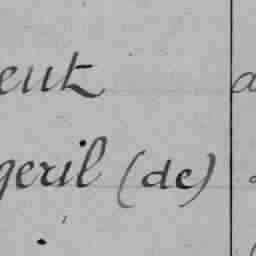 eut a
geril (de)